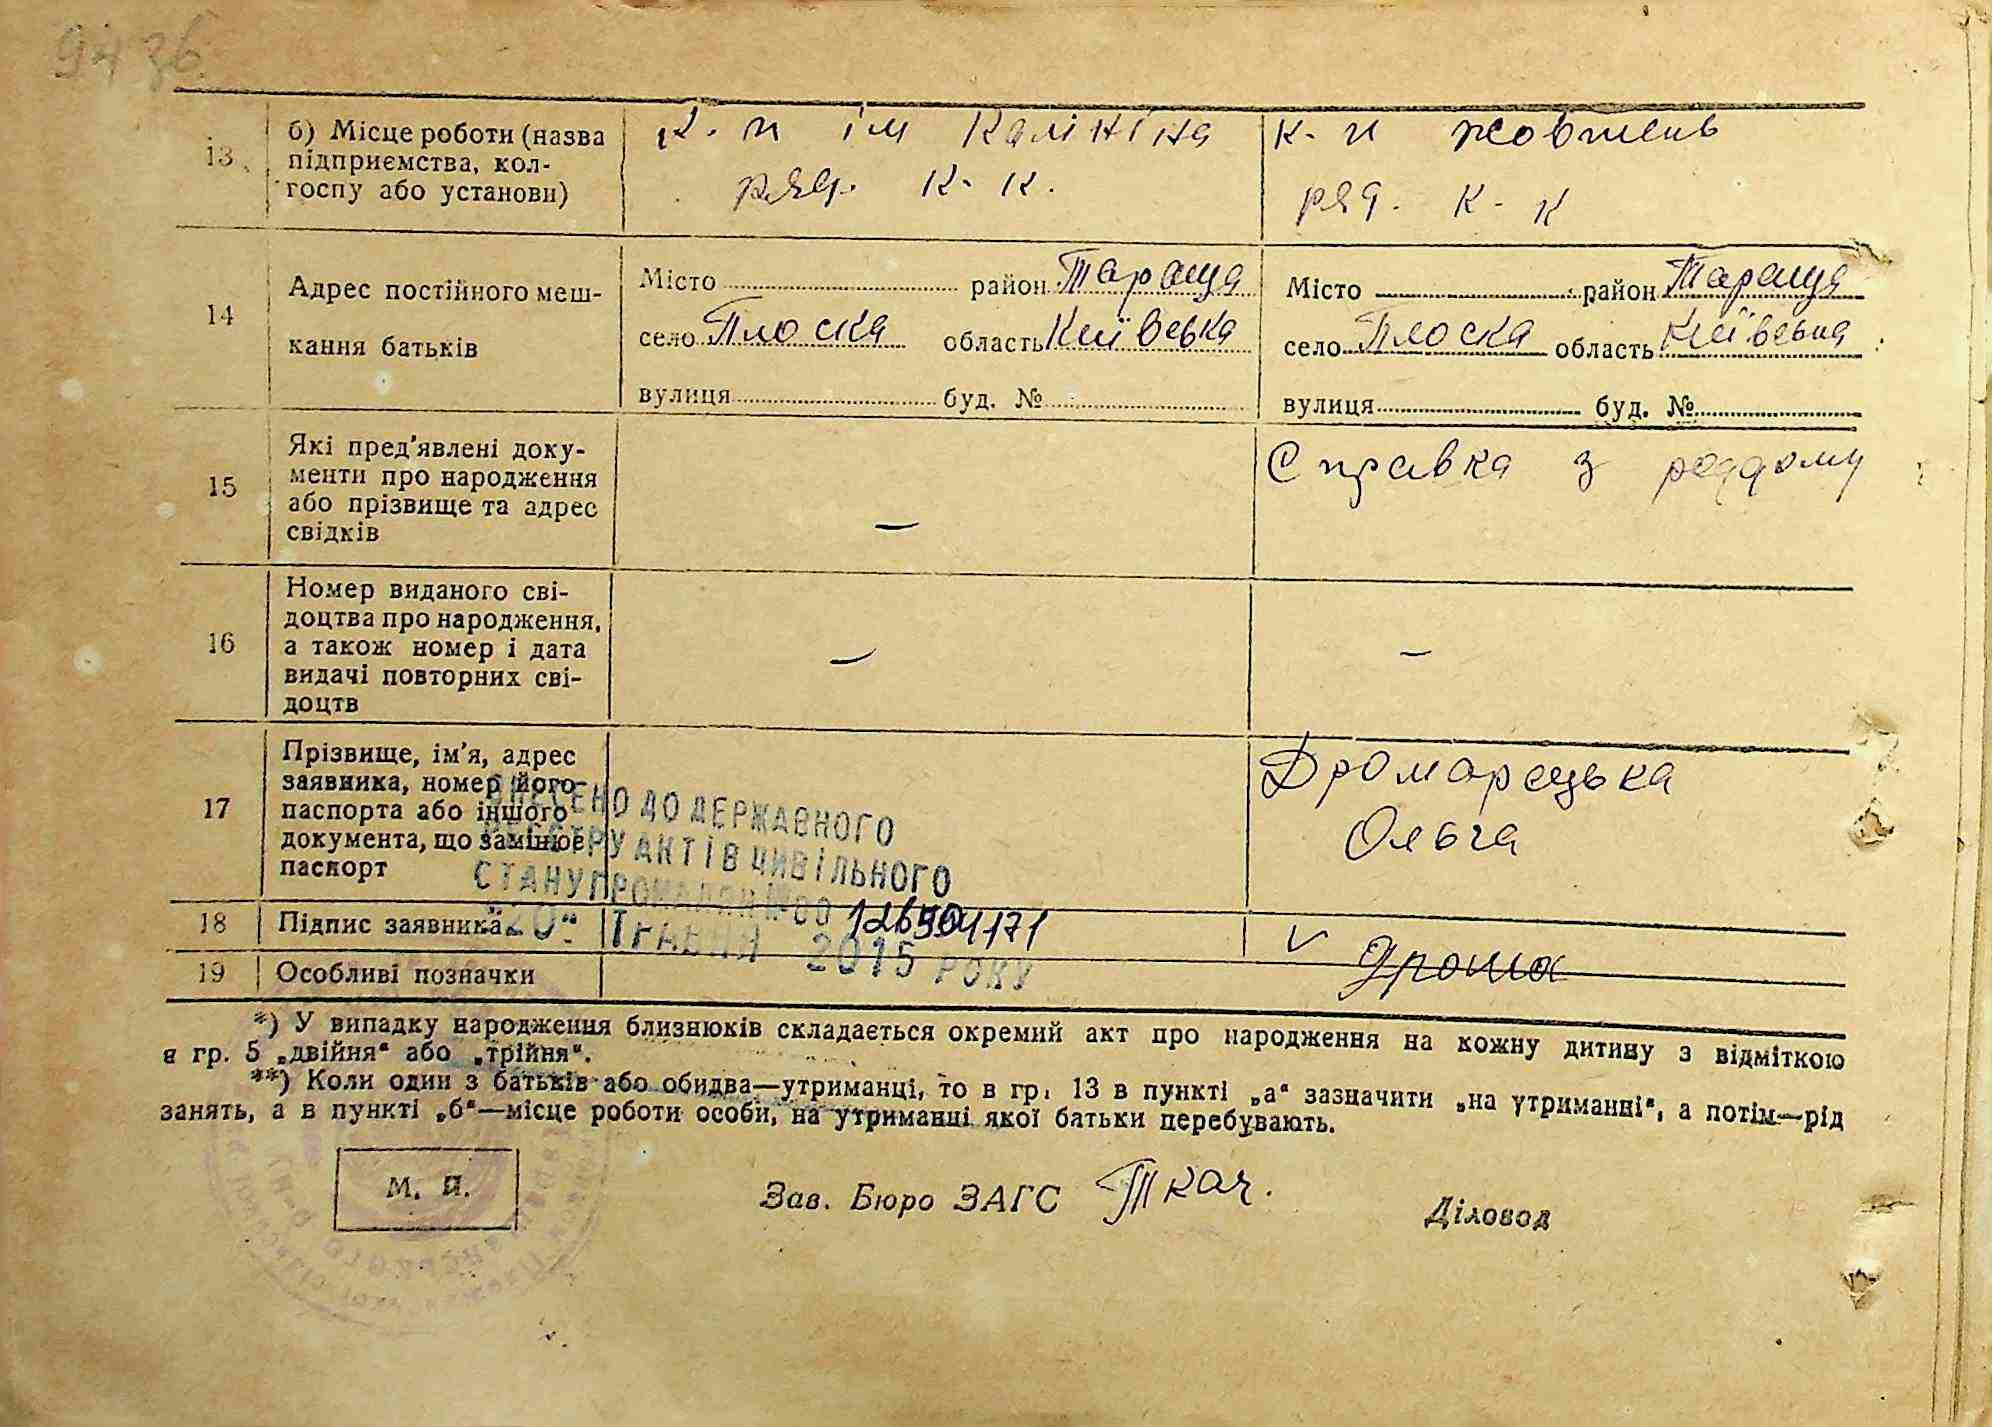 9436
13
б) Місце роботи (назва
підприємства, кол-
госпу або установи)
к-п ім Калініна
ряд. к-к.
к-п жовтень
ряд. к-к
14
Адрес постійного меш-
кання батьків
Місто район Тараща
село Плоска область Київська
вулиця буд. №
Місто район Тараща
село Плоска область Київська
вулиця буд. №
15
Які пред'явлені доку-
менти про народження
або прізвище та адрес
свідків
—
Справка з роддому
16
Номер виданого сві-
доцтва про народження,
а також номер і дата
видачі повторних сві-
доцтв
—
—
17
Прізвище, ім'я, адрес
заявника, номер його
паспорта або іншого
документа, що замінює
паспорт
Дромарецька
Ольга
ВНЕСЕНО ДО ДЕРЖАВНОГО
РЕЄСТРУ АКТІВ ЦИВІЛЬНОГО
СТАНУ ГРОМАДЯН №00
"20" ТРАВНЯ 2015 РОКУ
18 Підпис заявника
19 Особливі позначки
*) У випадку народження близнюків складається окремий акт про народження на кожну дитину з відміткою
в гр. 5 „двійня“ або „трійня“.
**) Коли один з батьків або обидва—утриманці, то в гр. 13 в пункті „а“ зазначити „на утриманні“, а потім—рід
занять, а в пункті „б“—місце роботи особи, на утриманні якої батьки перебувають.
М. П.
Зав. Бюро ЗАГС Ткач.
Діловод